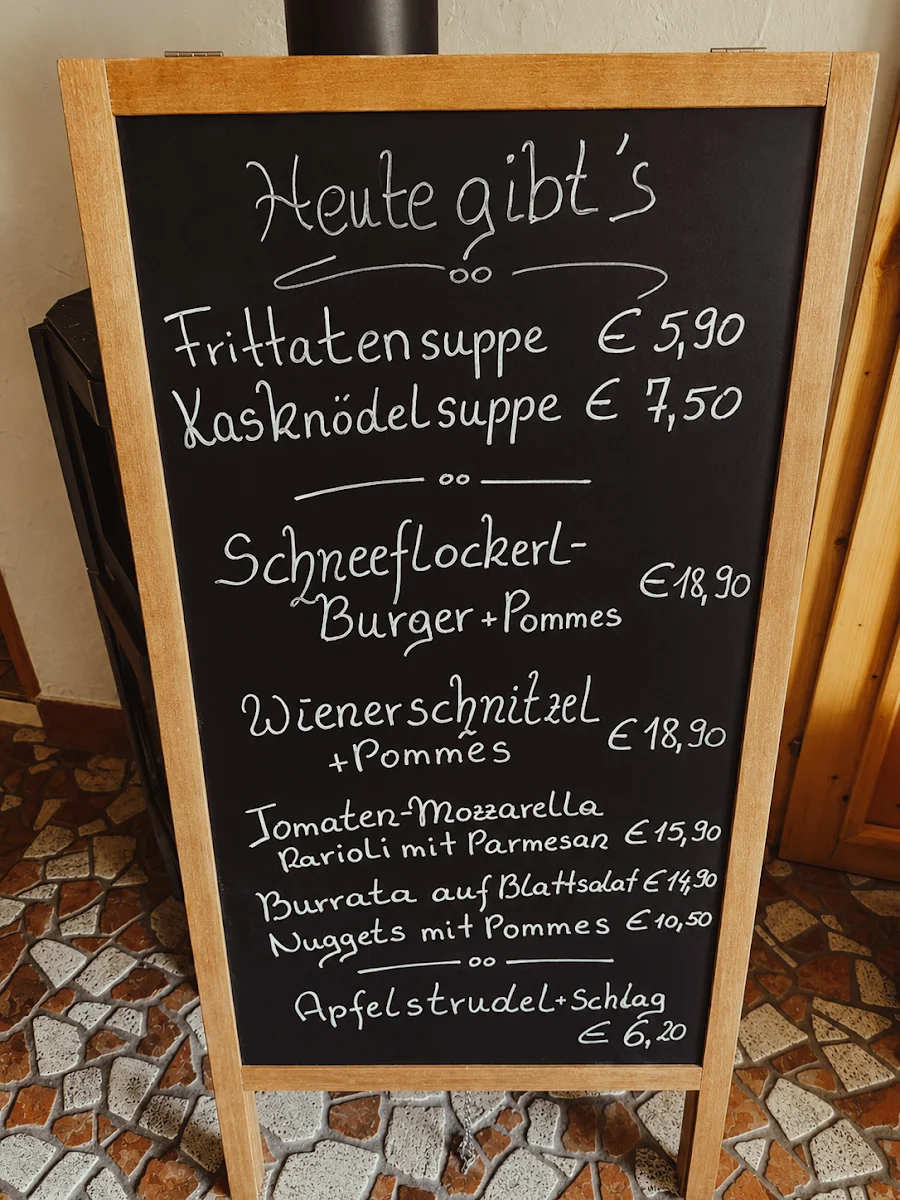 Heute gibt's
Frittatensuppe € 5,90
Kasknödelsuppe € 7,50
Schneeflockerl-
Burger + Pommes € 18,90
Wienerschnitzel
+ Pommes € 18,90
Tomaten-Mozzarella
Ravioli mit Parmesan € 15,90
Burrata auf Blattsalat € 14,90
Nuggets mit Pommes € 10,50
Apfelstrudel + Schlag
€ 6,20